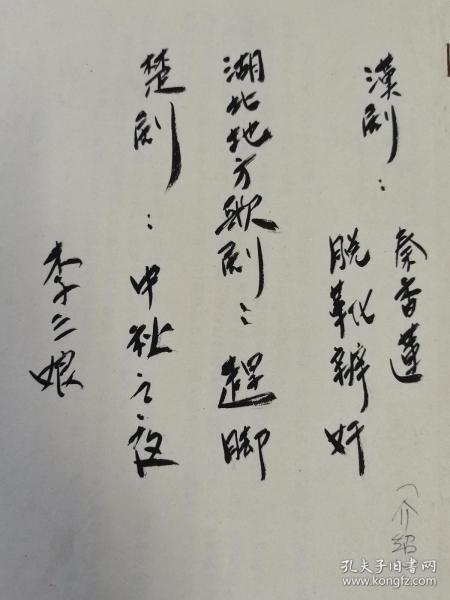 漢剧：
秦香蓮
脱靴辨奸
湖北地方歌剧：趕脚
楚剧：中秋之夜
李二娘
（介紹
孔夫子旧书网
www.kongfz.com